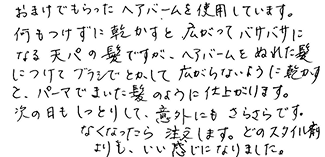 おまけでもらった ヘアバームを使用しています。
何もつけずに乾かすと広がってバサバサに
なる天パの髪ですが、ヘアバームをぬれた髪
につけてブラシでとかして広がらないように乾かす
と、パーマでまいた髪のように仕上がります。
次の日もしっとりして、意外にもさらさらです。
なくなったら注文します。どのスタイル剤
よりも、いい感じになりました。